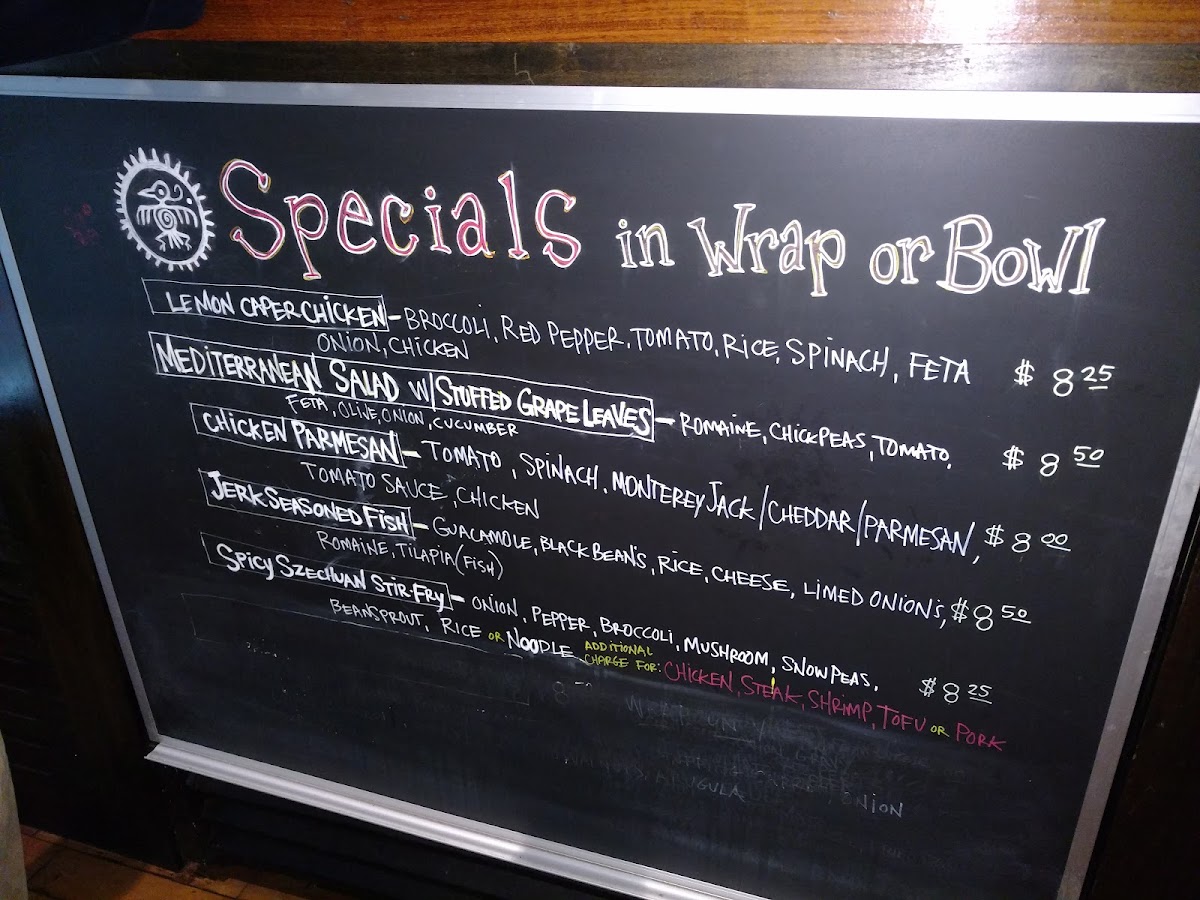 Specials in Wrap or Bowl
LEMON CAPER CHICKEN - BROCCOLI, RED PEPPER, TOMATO, RICE, SPINACH, FETA $ 8 25
ONION, CHICKEN
MEDITERRANEAN SALAD W/STUFFED GRAPE LEAVES - ROMAINE, CHICKPEAS, TOMATO, $ 8 50
FETA, OLIVE, ONION, CUCUMBER
CHICKEN PARMESAN - TOMATO, SPINACH, MONTEREY JACK/CHEDDAR/PARMESAN, $ 8 00
TOMATO SAUCE, CHICKEN
JERK SEASONED FISH - GUACAMOLE, BLACK BEANS, RICE, CHEESE, LIMED ONIONS, $ 8 50
ROMAINE, TILAPIA (FISH)
SPICY SZECHUAN STIR-FRY - ONION, PEPPER, BROCCOLI, MUSHROOM, SNOWPEAS, $ 8 25
BEANSPROUT, RICE OR NOODLE ADDITIONAL CHARGE FOR: CHICKEN, STEAK, SHRIMP, TOFU OR PORK
ONION